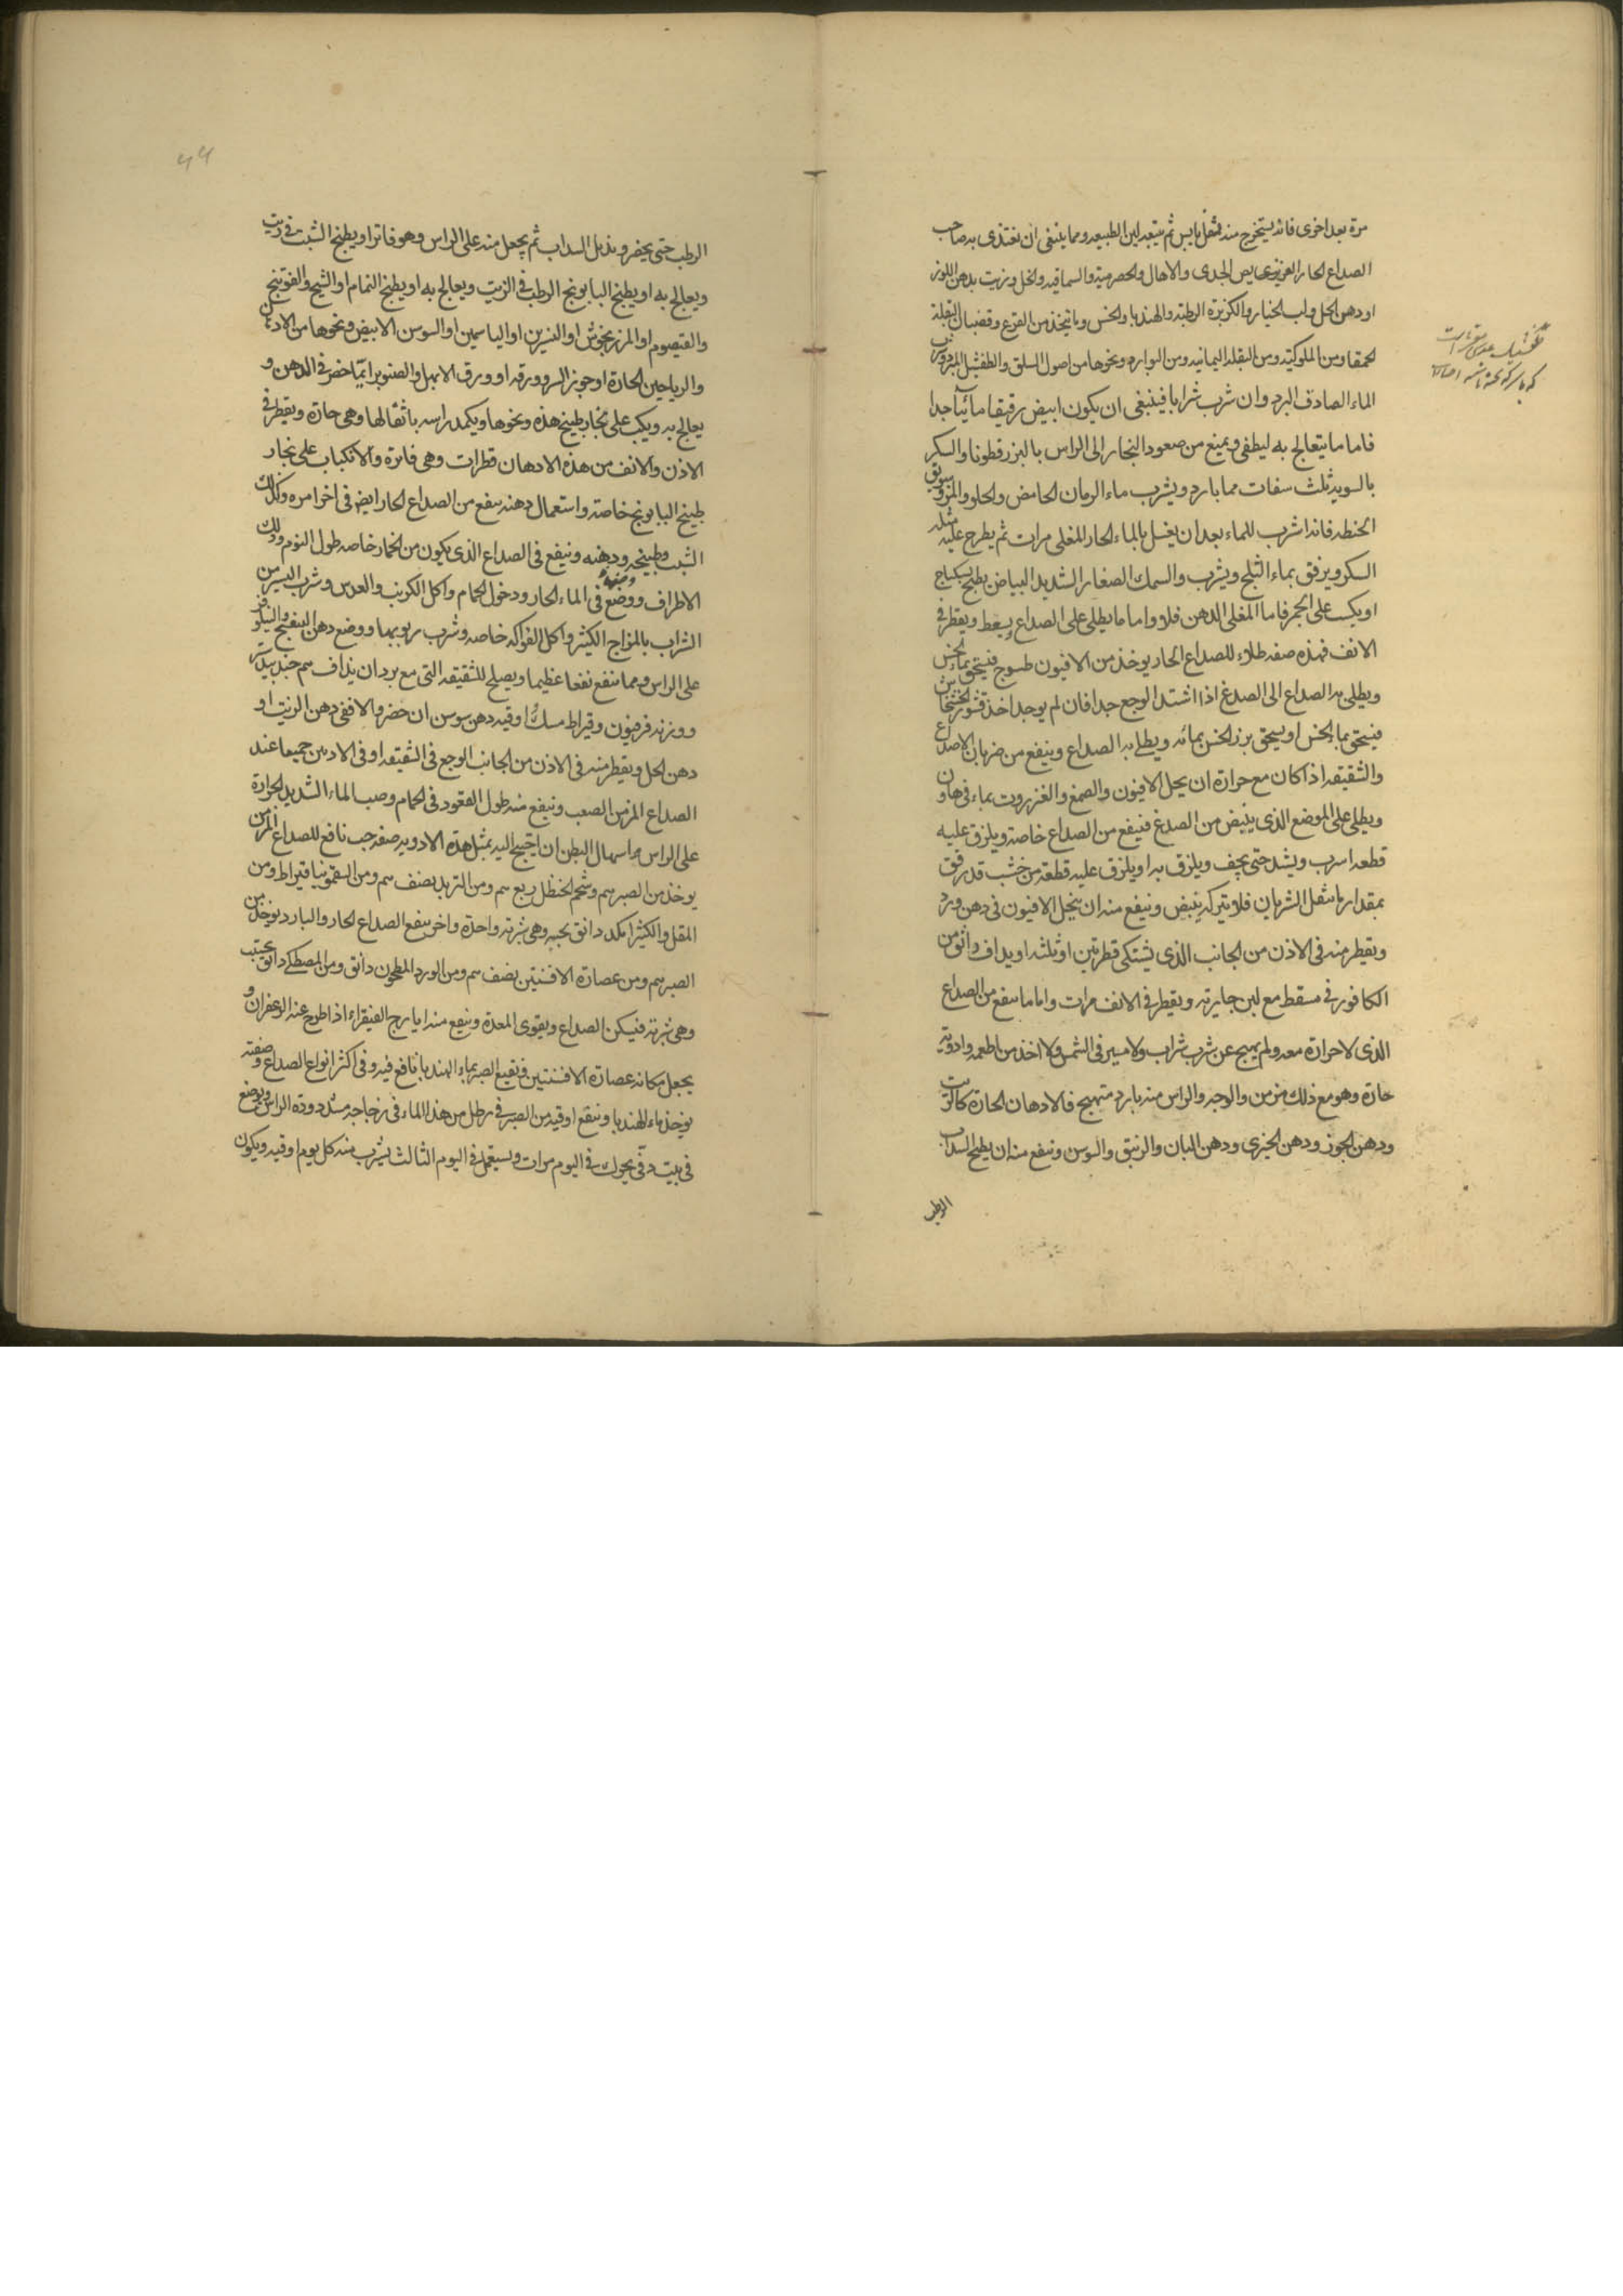 مرة بعد اخرى فانه يستخرج منه ثفل يابس ثم يتبعه لين الطبيعه ومما ينبغى ان يغتذى به صاحب
الصداع الحار العزيزى يص الجدى والاهال والحصرميه والسماقيه والخل وزيت بدهن اللوز
او دهن الحل ولب الخيار والكزبرة الرطبة والهندبا والخس وما يتخذ من القرع وقضبان البقلة
الحمقا ومن الملوكيه ومن البقلة اليمانيه ومن البوارد ونحوها من اصول السلق والطفشيل المبرد وشرب
الماء الصادق البرد وان شرب شرابا فينبغى ان يكون ابيض رقيقا مائيا جدا
فاما ما يتعالج به ليطفى ويمنع من صعود البخار الى الراس بالبزرقطونا والسكر
بالسويه ثلث سفات مما بارد ويشرب ماء الرمان الحامض والحلو والمز وسويق
الحنطه فانه اشرب للماء بعد ان يغسل بالماء الحار المغلى مرات ثم يطرح عليه مثله
السكر ويرفق بماء الثلج ويشرب والسمك الصغار الشديد البياض يطبخ بسكباج
او يكبب على الجمر فاما المغلى الدهن فلا واما ما يطلى على الصداع ويسعط ويقطر فى
الانف فهذه صفه طلاء للصداع الحار يوخذ من الافيون طسوج فيسحق بماء الخس
ويطلى به الصداع الى الصدغ اذا اشتد الوجع جدا فان لم يوجد اخذ قشور الخشخاش
فيسحق بما الخس او يسحق بزر الخس بمائه ويطلا به الصداع وينفع من ضربان الاصداغ
والشقيقه اذا كان مع حرارة ان يحل الافيون والصمغ والعنزروت بماء فى هاون
ويطلى على الموضع الذى ينبض من الصدغ فينفع من الصداع خاصة ويلزق عليه
قطعه اسرب ويشد حتى يجف ويلزق به او يلزق عليه قطعة من خشب قد رقق
بمقدار ما يثقل الشريان فلا يتركه ينبض وينفع منه ان يحل الافيون فى دهن ورد
ويقطر منه فى الاذن من الجانب الذى يشتكى قطرتين او ثلثه او يداف دانق من
الكافور فى مسقط مع لبن جاريه ويقطر فى الانف مرات واما ما ينفع من الصداع
الذى لا حرارة معه ولم يهيج عن شرب شراب ولا مسير فى الشمس ولا اخذ من اطعمه وادويه
حارة وهو مع ذلك مزمن والوجه والراس منه بارد متهيج فالادهان الحارة كالزيت
ودهن الجوز ودهن الخيرى ودهن البان والزنبق والسوسن وينفع منه ان يطبخ السداب
الرطب
الرطب حتى يخضر ويذبل السداب ثم يجعل منه على الراس وهو فاتر او يطبخ الشبت فى زيت
ويعالج به او يطبخ البابونج الرطب فى الزيت ويعالج به او يطبخ النمام او الشيح والفوتنج
والقيصوم او المرزنجوش او النسرين او الياسمين او السوسن الابيض ونحوها من الادهان
والرياحين الحارة او جوز السرو ورقه او ورق الابهل والصنوبر ايما حضر فى الدهن و
يعالج به ويكب على بخار طبيخ هذه ونحوها ويكمد راسه باثفالها وهى حارة ويقطر فى
الاذن والانف من هذه الادهان قطرات وهى فاترة والانكباب على بخار
طبيخ البابونج خاصة واستعمال دهنه ينفع من الصداع الحار ايضا فى اخر امره وكذلك
الشبت وطبيخه ودهنه وينفع فى الصداع الذى يكون من الخمار خاصه طول النوم ودلك
الاطراف ووضعها فى الماء الحار ودخول الحمام واكل الكرنب والعدس وشرب اليسير من
الشراب بالمزاج الكثير واكل الفواكه خاصه وشرب ربوبها ووضع دهن البنفسج والنيلوفر
على الراس ومما ينفع نفعا عظيما ويصلح للشقيقه التى مع برد ان يداف سم جندبيدستر
ووزنه فرفيون وقيراط مسك اوقيه دهن سوسن ان حضر والا ففى دهن الزيت او
دهن الحل ويقطر منه فى الاذن من الجانب الوجع فى الشقيقه او فى الاذنين جميعا عند
الصداع المزمن الصعب وينفع منه طول القعود فى الحمام وصب الماء الشديد الحرارة
على الراس واسهال البطن ان احتيج اليه بمثل هذه الادويه صفه حب نافع للصداع المزمن
يوخذ من الصبر سم وشحم الحنظل ربع سم ومن التربد نصف سم ومن السقمونيا قيراط ومن
المقل والكثيرا مكد دانق يحبب وهى شربة واحدة واخر ينفع الصداع الحار والبارد يوخذ من
الصبر سم ومن عصارة الافسنتين نصف سم ومن الورد المطحون دانق ومن المصطكى دانق يحبب
وهى شربة فيسكن الصداع ويقوى المعدة وينفع منه ايارج الفيقراء اذا طرح عنه الزعفران و
يجعل مكانه عصارة الافسنتين ونقيع الصبر بماء الهندبا نافع فيه وفى اكثر انواع الصداع وصفته
يوخذ ماء الهندبا وينقع اوقيه من الصبر فى رطل من هذا الماء فى زجاجه مسدودة الراس ويوضع
فى بيت دفى يحرك فى اليوم مرات ويستعمل فى اليوم الثالث يشرب منه كل يوم اوقيه ويكون